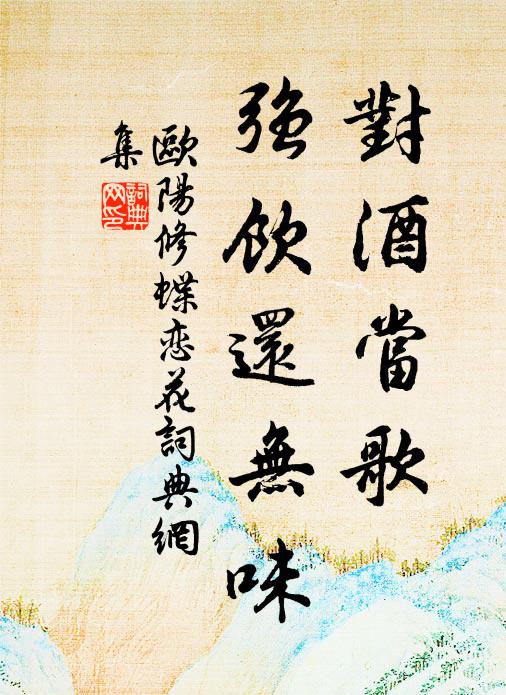 對酒當歌
強飲還無味
歐陽修蝶恋花詞典網
集
詞典
网印